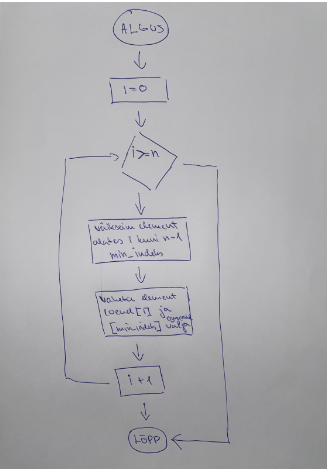 ALGUS
i=0
i>=n
väikseim element
alates i kuni n-1
min_indeks
vaheta element
loend[i] ja
[min_indeks] välja
i+1
LÕPP